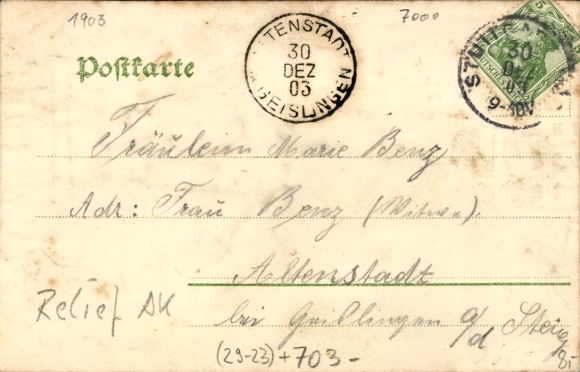 1903
7000
5
Postkarte
ALTENSTADT
30
DEZ
03
A. GEISLINGEN
STUTTGART
30
DEZ
03
9-10V
Fräulein Marie Benz
Adr: Frau Benz (Witwe).
Altenstadt
bei Geislingen a/d Steig
Relief AK
(29-23)+703-
8,-